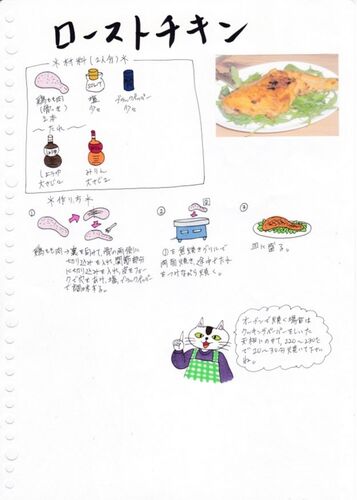 ローストチキン
＊材料(2人分)＊
鶏もも肉
(骨つき)
2本
塩
少々
ブラックペッパー
少々
〜たれ〜
しょうゆ
大さじ2
みりん
大さじ2
＊作り方＊
①
鶏もも肉→裏を向けて、骨の両側に
切り込みを入れ、関節部分
に切り込みを入れ、皮をフォー
クで穴をあけ、塩、ブラックペッパー
で
②
①を魚焼きグリルで
両面焼き、途中でたれ
をつけながら焼く。
③
皿に盛る。
オーブンで焼く場合は
クッキングペーパーをしいた
天板にのせて、220〜230℃
で20〜30分焼いて下さい
ね。